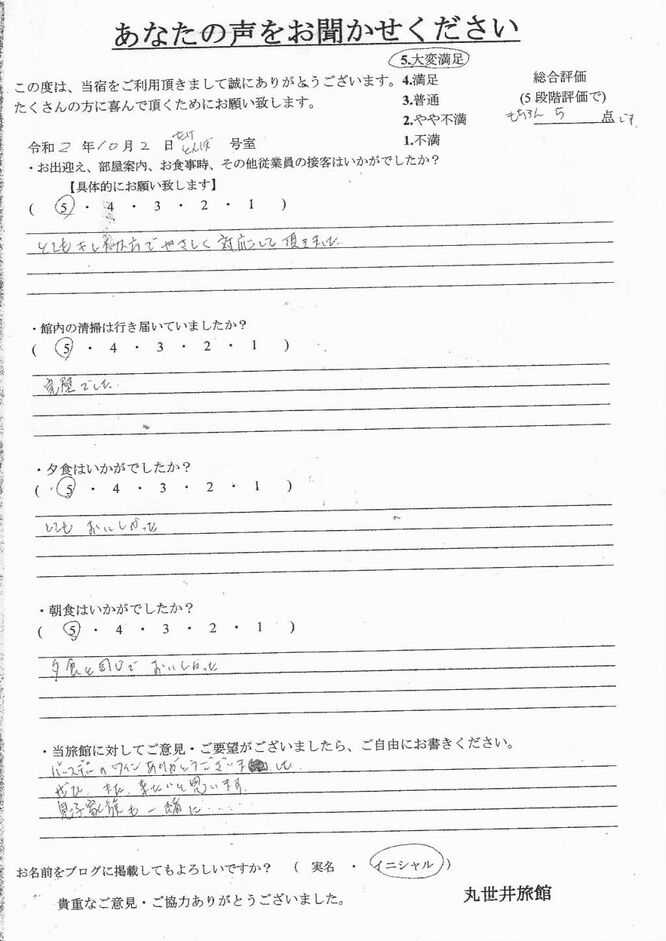 あなたの声をお聞かせください
5.大変満足
この度は、当宿をご利用頂きまして誠にありがとうございます。
4.満足
総合評価
たくさんの方に喜んで頂くためにお願い致します。
3.普通
(5段階評価で)
2.やや不満
もちろん 5 点です
1.不満
令和2年10月2日 号室
・お出迎え、部屋案内、お食事時、その他従業員の接客はいかがでしたか?
【具体的にお願い致します】
( 5 ・ 4 ・ 3 ・ 2 ・ 1 )
とても でやさしく対応して頂きました
・館内の清掃は行き届いていましたか?
( 5 ・ 4 ・ 3 ・ 2 ・ 1 )
完璧でした
・夕食はいかがでしたか?
( 5 ・ 4 ・ 3 ・ 2 ・ 1 )
とても おいしかった
・朝食はいかがでしたか?
( 5 ・ 4 ・ 3 ・ 2 ・ 1 )
夕食と同じで おいしかった
・当旅館に対してご意見・ご要望がございましたら、ご自由にお書きください。
バースデーのワインありがとうございました
ぜひ、また、来たいと思います
息子家族も一緒に……
お名前をブログに掲載してもよろしいですか? ( 実名 ・ イニシャル )
貴重なご意見・ご協力ありがとうございました。
丸世井旅館